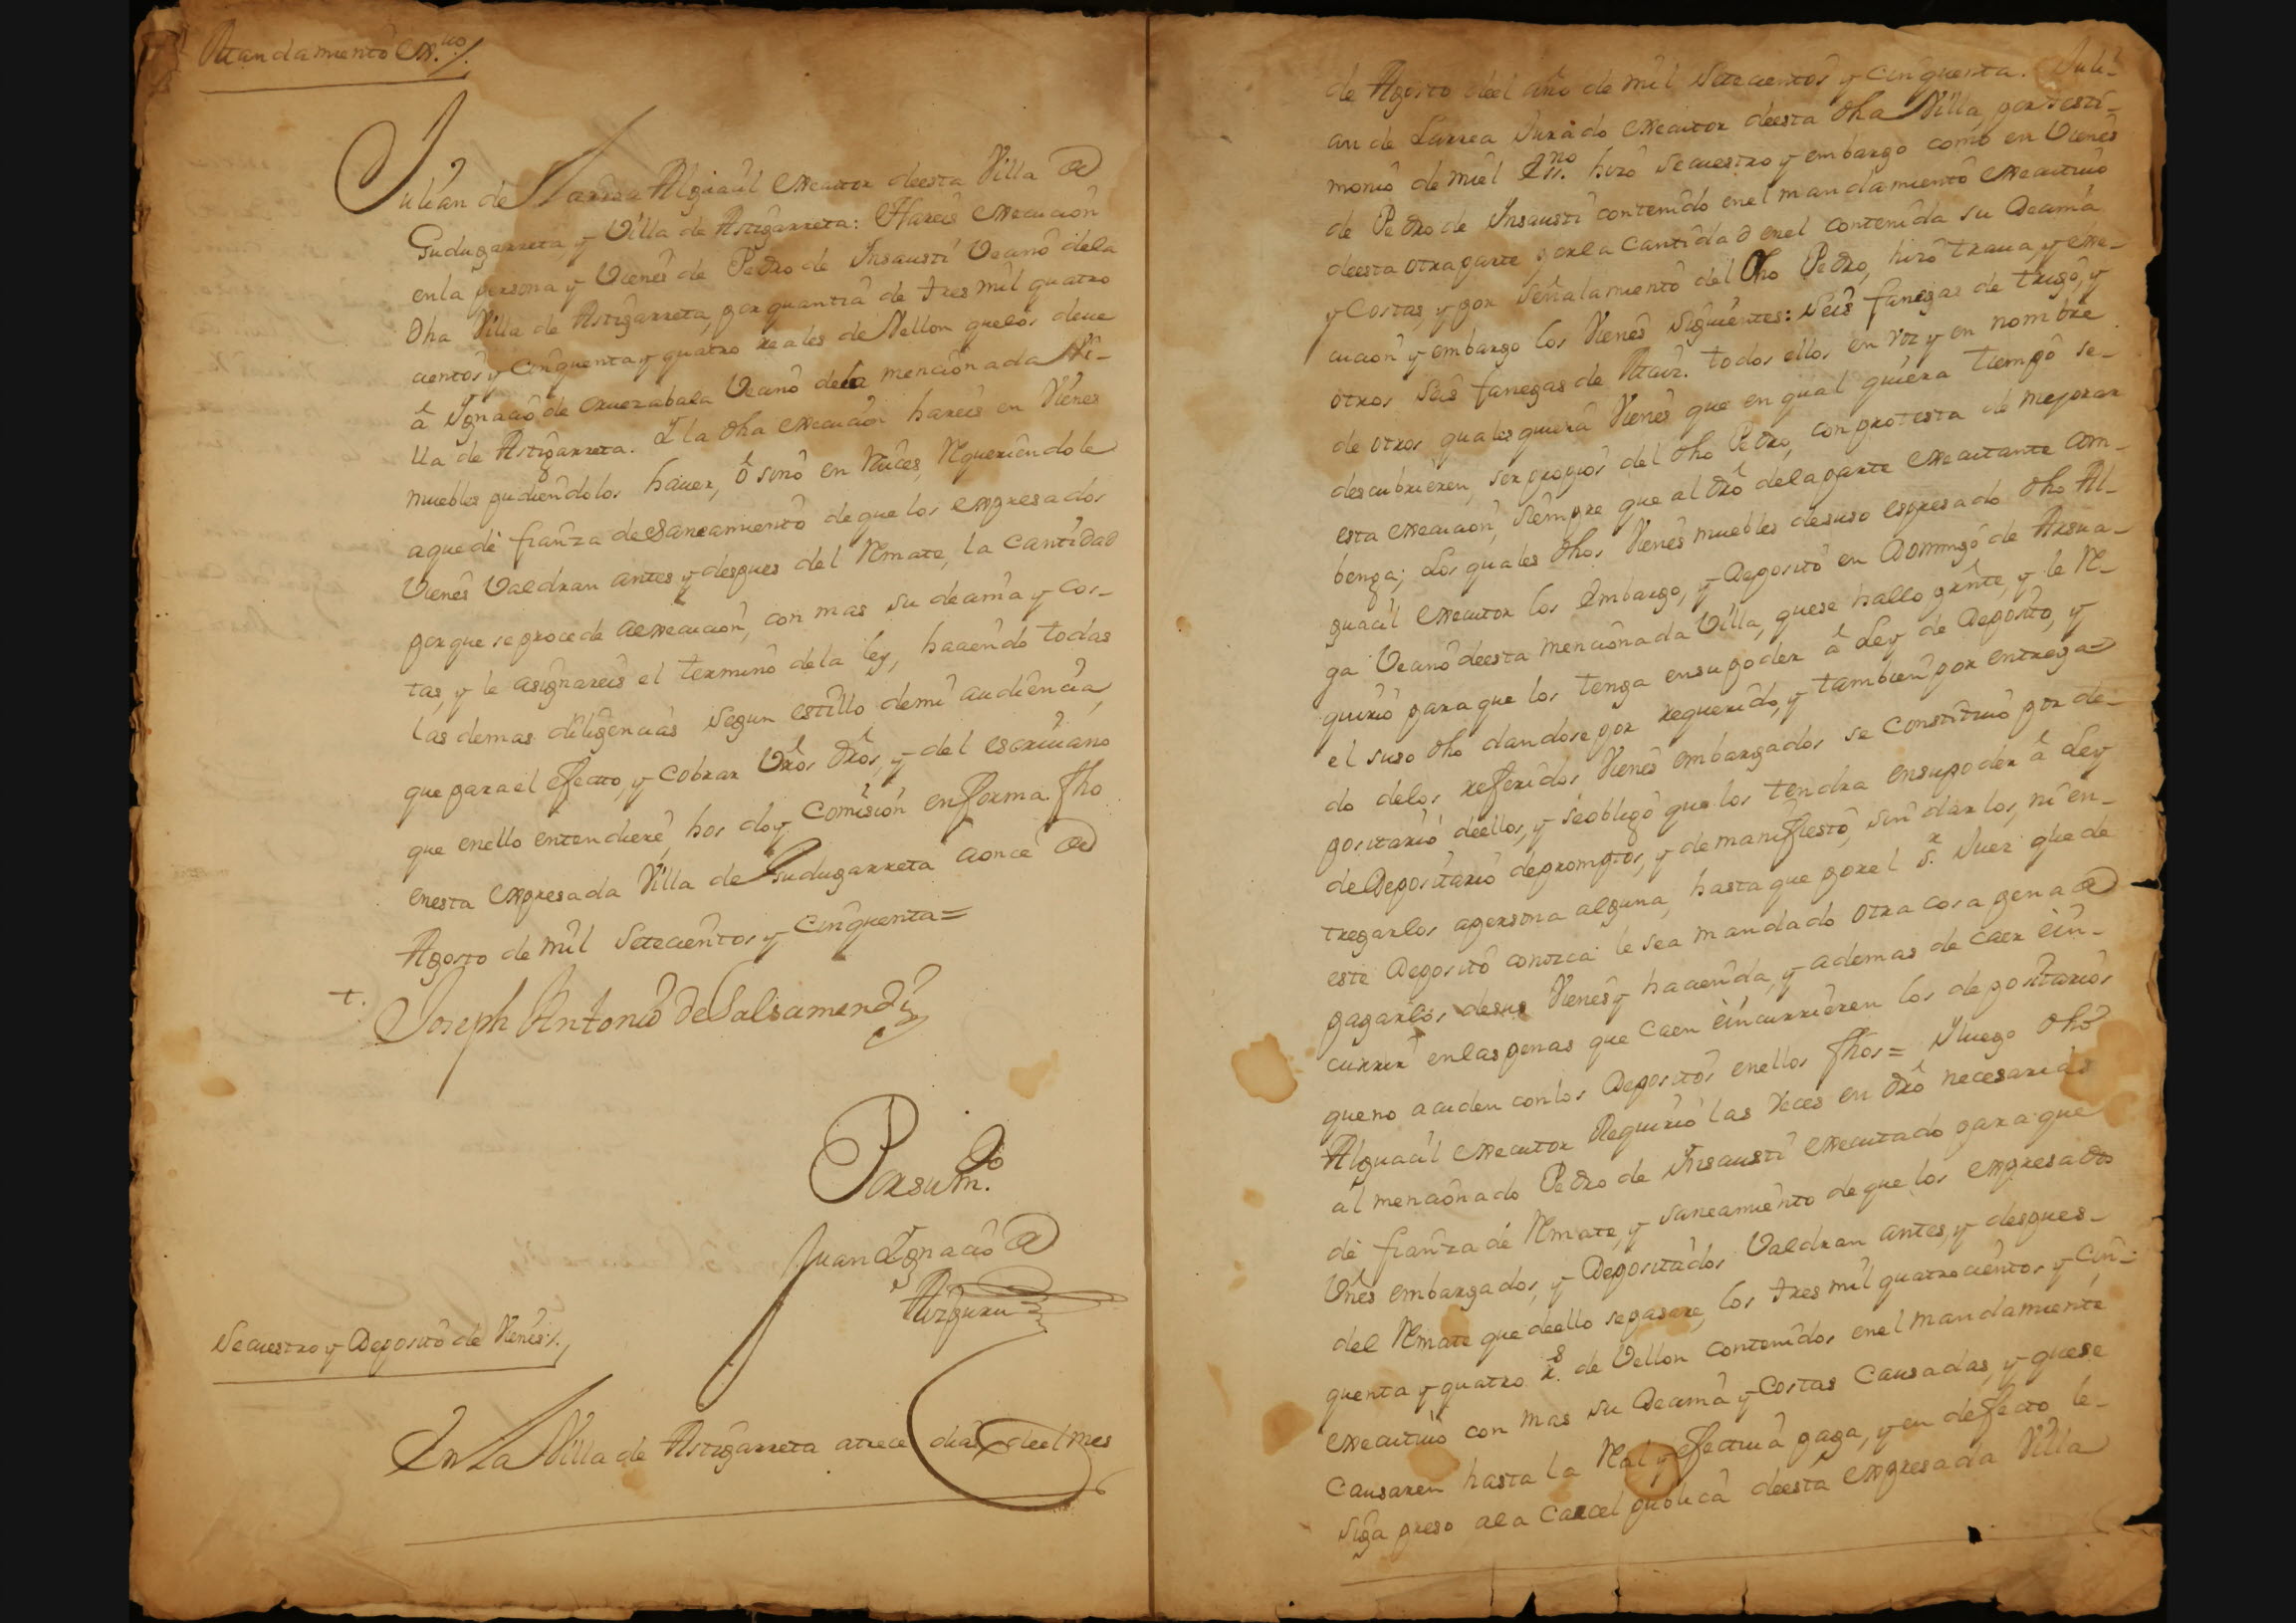 Mandamiento Ex.uo/.
Julian de Larrea Alguacil executor deesta Villa de
Gudugarreta, y Villa de Astigarreta: Hareis execucion
enla persona y Vienes de Pedro de Insausti Vecino dela
dha Villa de Astigarreta, por quantia de tres mil quatro
cientos y cinquenta y quatro reales de Vellon quelos deve
â Ignacio de Eruezabala Vecino dela mencionada Vi-
lla de Astigarreta. I la dha execucion hareis en Vienes
muebles pudiendolos haver, ô sino en Raices, Requeriendole
aquedé fianza desaneamiento deque los expresados
Vienes Valdran antes y despues del Remate, la cantidad
porque seprocede aexecucion, con mas su decima y cos-
tas, y le asignareis el termino dela ley, haciendo todas
las demas diligencias segun estillo demi audiencia,
que para el efecto, y cobrar Vros dros, y del escrivano
que enello entendiere, hos doy comision enforma. fho
enesta expresada Villa de Gudugarreta aonce de
Agosto de mil setecientos y cinquenta=
t. Joseph Antonio de Salsamendi
Porsu m.do
Juan Ignacio de
Aizpuru
Secuestro y Deposito de Vienes/.
En La Villa de Astigarreta atrece dias deel mes
de Agosto deel año de mil setecientos y cinquenta. Juli-
an de Larrea Jurado executor deesta dha Villa, por testi-
monio de miel Ss.no hizo secuestro y embargo como en Vienes
de Pedro de Insausti contenido enel mandamiento executivo
deesta otra parte, porla cantidad enel contenida su Decima
y Costas, y por señalamiento del dho Pedro, hizo trava, y exe-
cucion y embargo los Vienes siguientes: seis fanegas de trigo, y
otros seis fanegas de Maiz. todos ellos en voz y en nombre
de otros qualesquiera Vienes que en qual quiera tiempo se-
descubrieren, ser propios del dho Pedro, con protesta de mejorar
esta execucion, siempre que al dro dela parte executante com-
benga; Los quales dhos Vienes muebles desuso espresado dho Al-
guacil executor los Embargo, y Deposito en Domingo de Arsua-
ga Vecino deesta mencionada Villa, quese hallo preste, y le Re-
quirio paraque los tenga ensupoder â Ley de Deposito, y
el suso dho dandose por requerido, y tambien por entrega-
do delos referidos Vienes embargados se constituio por de-
positario deellos, y seobligó que los tendra ensupoder â Ley
de Depositario depromptos, y demanifiesto, sin darlos, ni en-
tregarlos apersona alguna, hasta que porel s.r Juez que de
este Deposito conozca le sea mandado otra cosa pena de
pagarlos desus Vienes y hacienda, y ademas de caer êin-
currir enlas penas que caen êincurrieren los depositarios
queno acuden conlos Depositos enellos fhos= Yluego dho
Alguacil executor Requirio las veces en dro necesarias
al mencionado Pedro de Insausti executado paraque
dé fianza de Remate, y saneamiento deque los expresados
Vnes embargados, y Depositados Valdran antes, y despues-
del Remate que deello sepasare, los tres mil quatrocientos y cin-
quenta y quatro r.s de Vellon contenidos enel mandamiento
executivo con mas su Decima y Costas Causadas, y quese
Causaren hasta la Real y efectiva paga, y en defecto le-
siga preso ala Carcel publica deesta expresada Villa